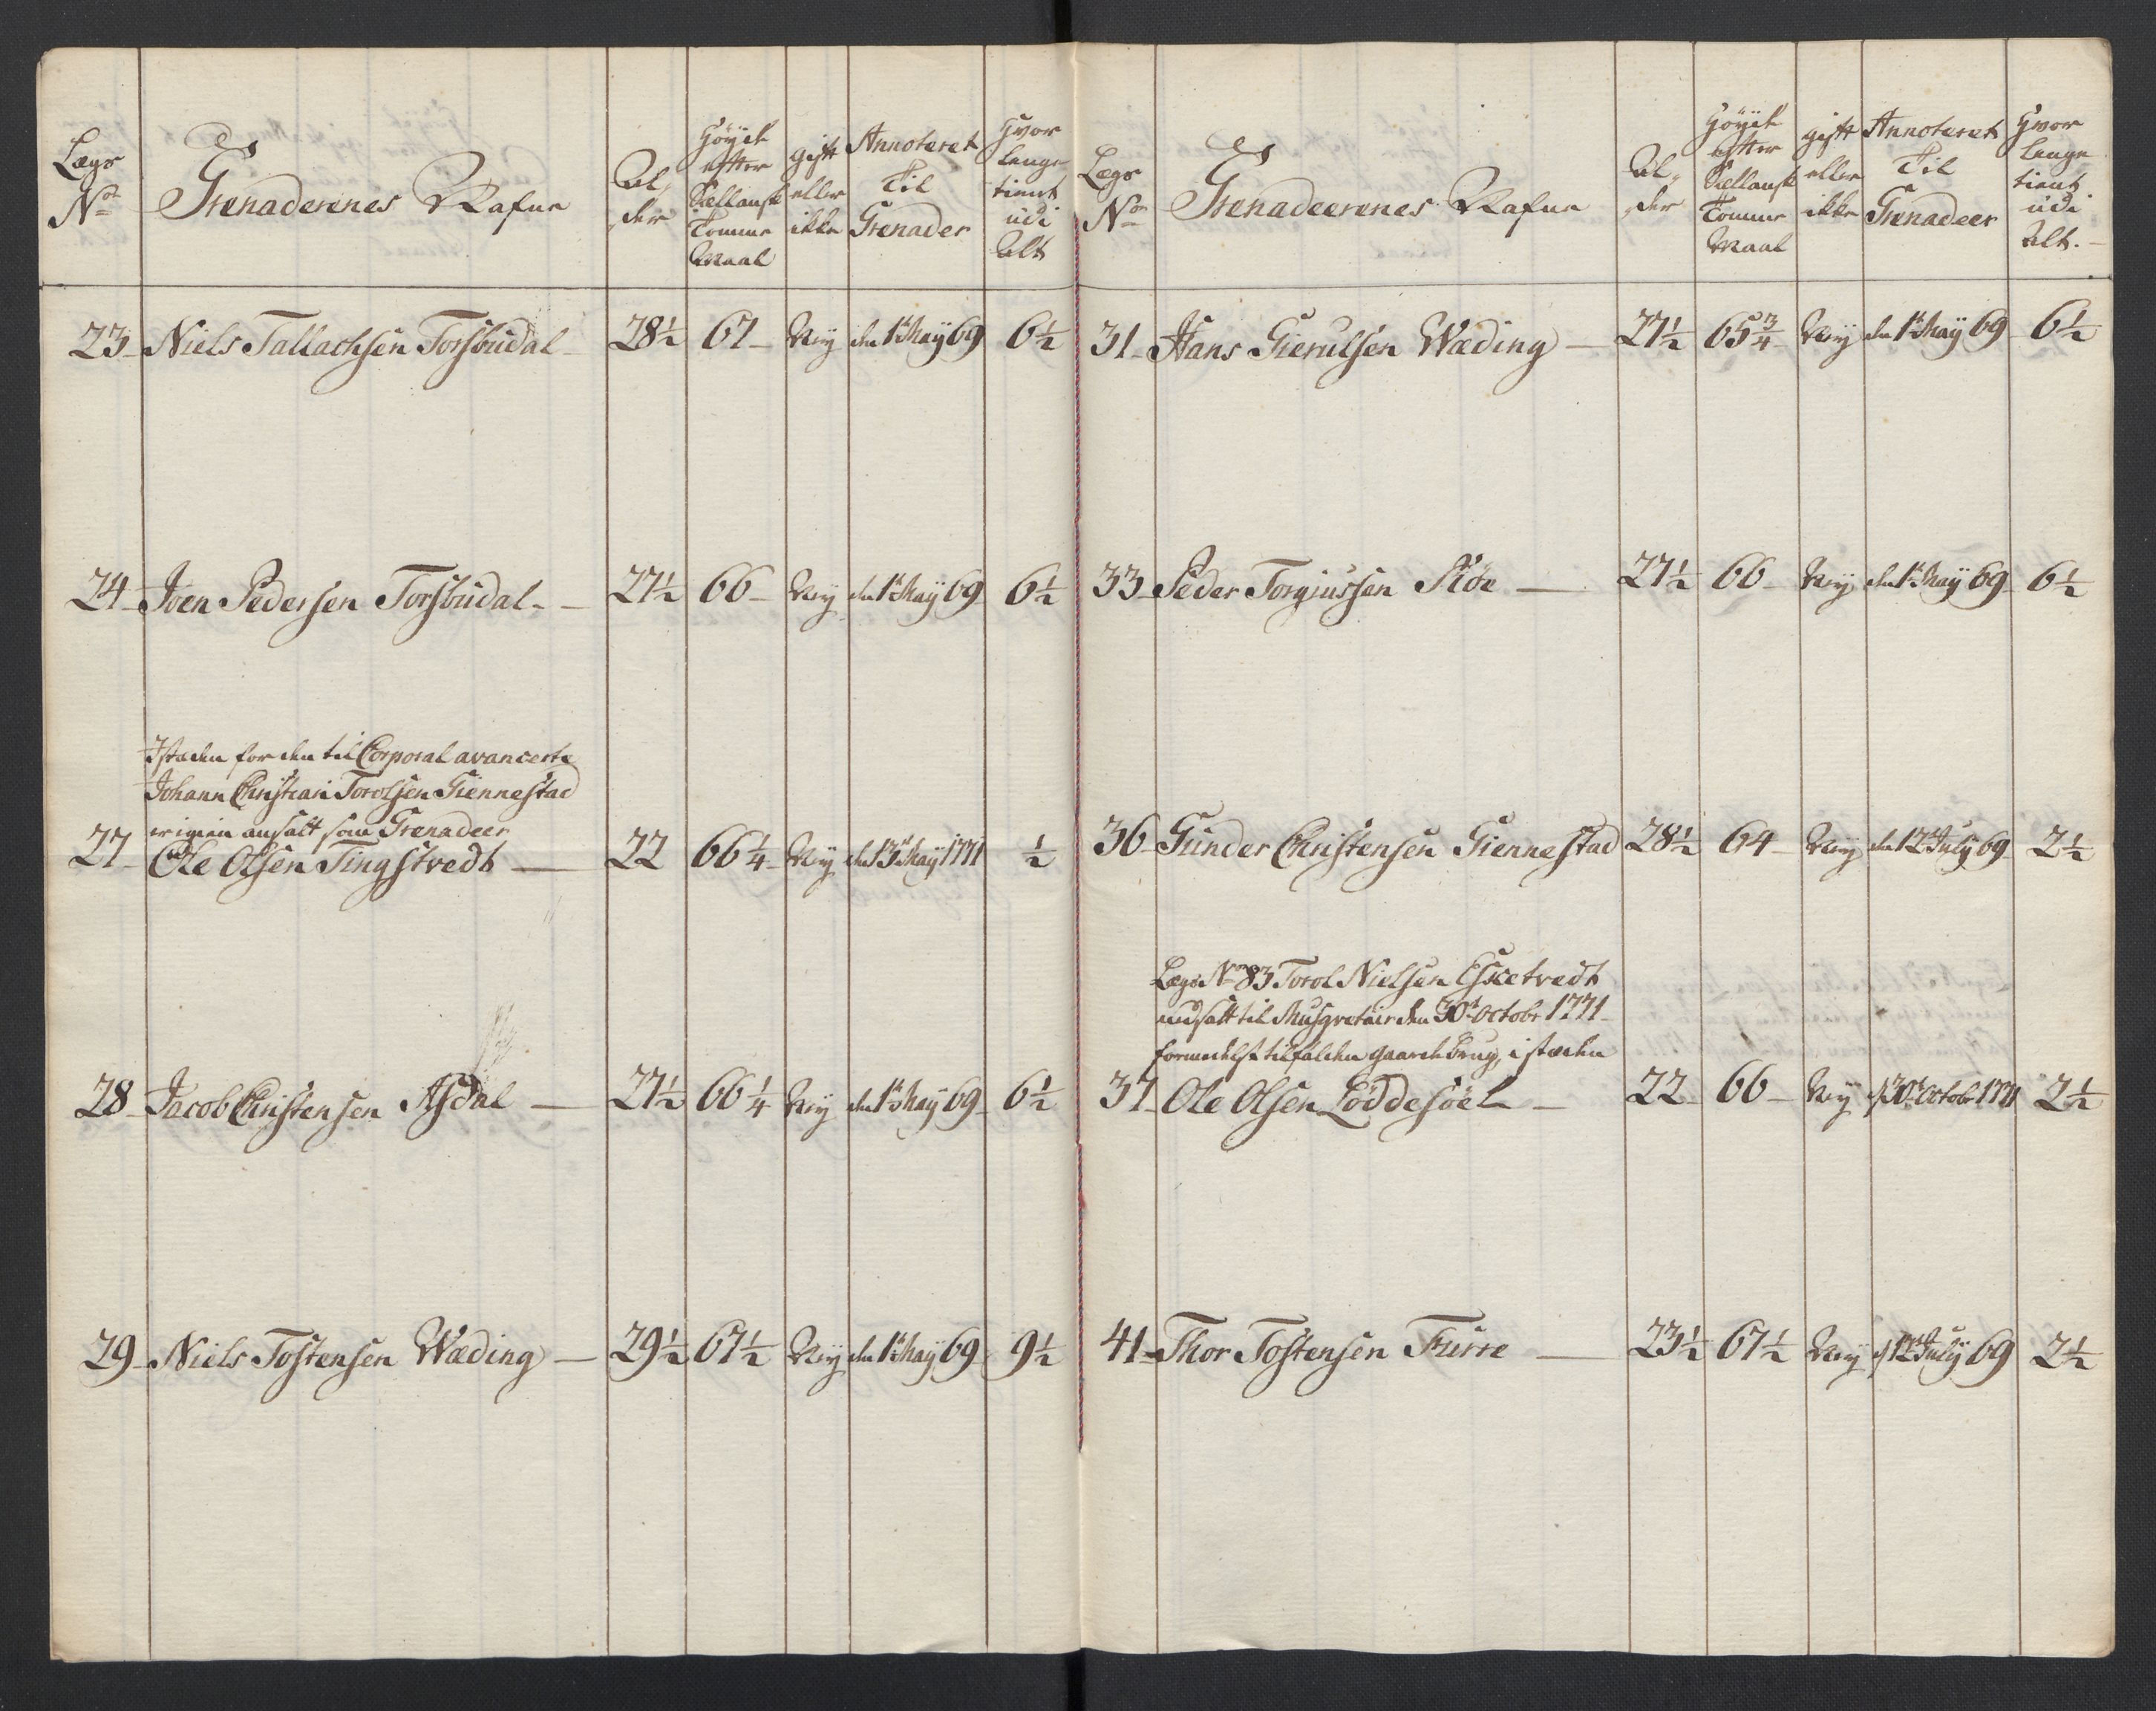 Lægs No
Grenaderenes Nafne
Al, der
Höÿet efter Siellansk Tomme Maal
gift eller ikke
Annoteret Til Grenader
Hvor lenge tient udi Alt
23 Niels Tallachsen Torsbudal 28½ 67 Neÿ den 1t Maÿ 69 6½
24 Joen Pedersen Torsbudal 27½ 66 Neÿ den 1t Maÿ 69 6½
Istæden for den til Corporal avancerte
Johann Christian Torolsen Giennestad
er igien ansatt som Grenadeer
27 Ole Olsen Tingstvedt 22 66¼ Neÿ den 13t Maÿ 1771 ½
28 Jacob Christensen Asdal 27½ 66¼ Neÿ den 1t Maÿ 69 6½
29 Niels Tostensen Wæding 29½ 67½ Neÿ den 1t Maÿ 69 9½
Lægs No
Grenadeerenes Nafne
Al, der
Höÿet efter Siellansk Tomme Maal
gift eller ikke
Annoteret Til Grenadeer
Hvor lenge tient udi Alt.
31 Hans Gierulsen Wæding 27½ 65¾ Neÿ den 1t Maÿ 69 6½
33 Peder Torgiussen Riöe 27½ 66 Neÿ den 1t Maÿ 69 6½
36 Gunder Christensen Giennestad 28½ 64 Neÿ den 12t Julÿ 69 2½
Lægs No 83 Torol Nielsen Esketvedt
udsatt til Musqvetair den 30t Octobr 1771
formedelst tilfalden gaardebrug, i stæden
37 Ole Olsen Löddesöel 22 66 Neÿ d 30t Octobr 1771 2½
41 Thor Tostensen Furre 23½ 67½ Neÿ d 12t Julÿ 69 2½